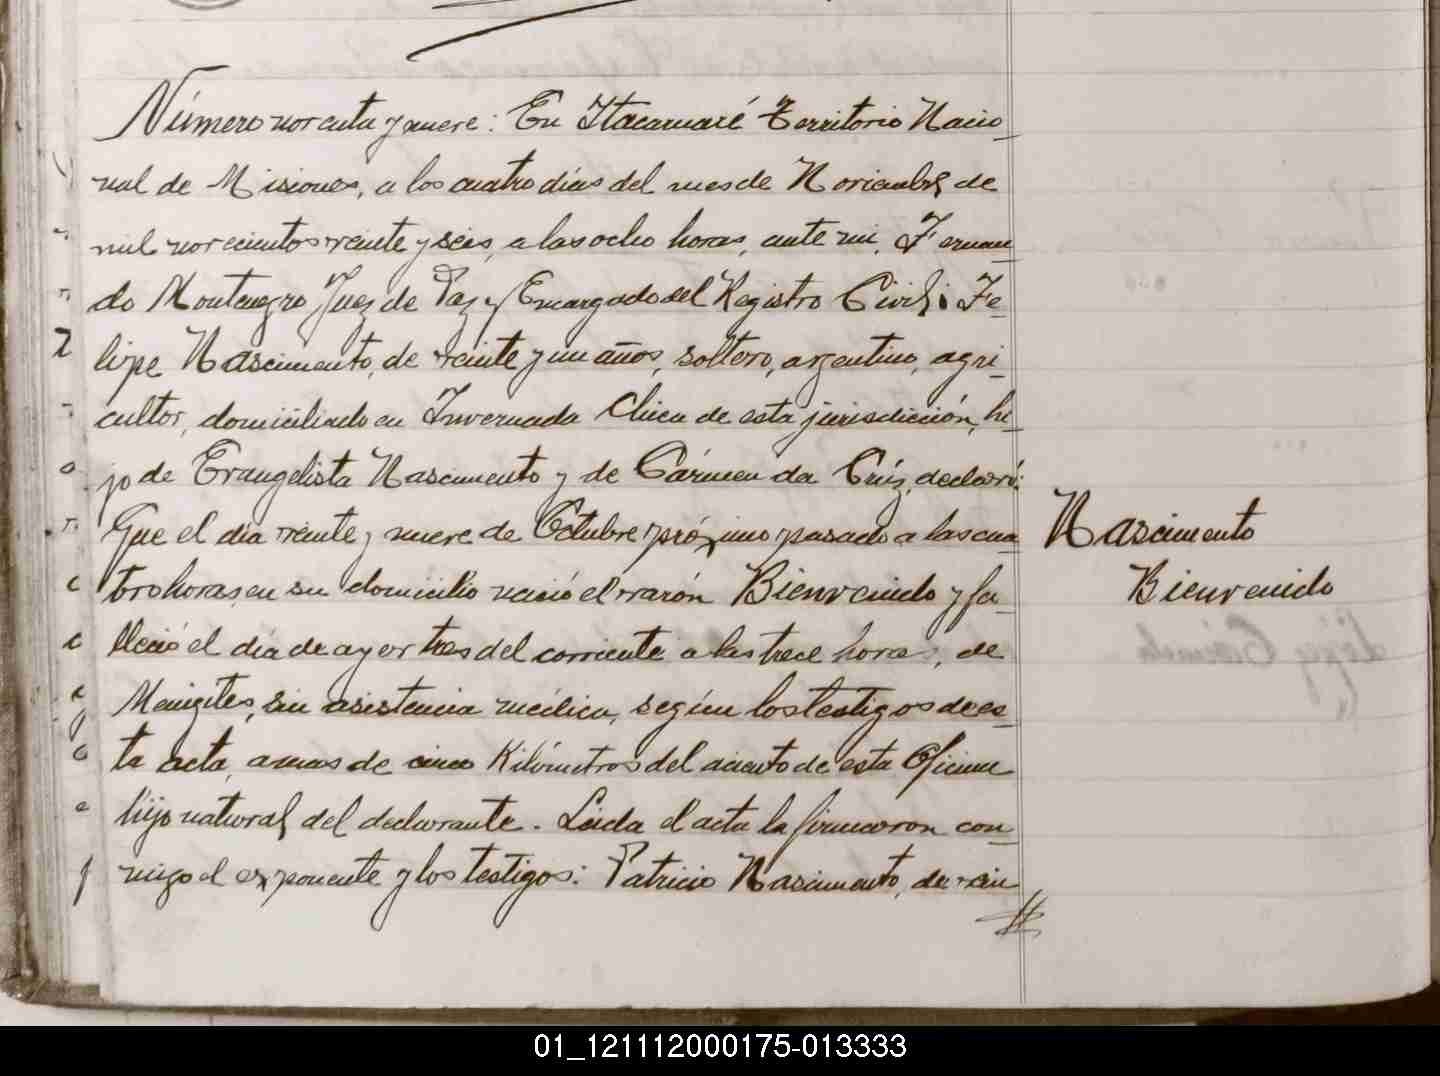 Número noventa y nueve: En Itacaruaré Territorio Nacio-
nal de Misiones, a los cuatro días del mes de Noviembre de
mil novecientos veinte y seis, a las ocho horas, ante mi, Fernan-
do Montenegro Juez de Paz y Encargado del Registro Civil: Fe-
lipe Nascimento, de veinte y un años, soltero, argentino, agri-
cultor, domiciliado en Invernada Chica de esta jurisdicción, hi-
jo de Evangelista Nascimento y de Cármen da Crúz, declaró:
Que el día veinte y nueve de Octubre próximo pasado a las cua-
tro horas, en su domicilio nació el varón Bienvenido y fa-
lleció el día de ayer tres del corriente a las trece horas, de
Meigites, sin asistencia médica, según los testigos de es-
ta acta, a mas de cinco Kilómetros del aciento de esta Oficina
hijo natural del declarante. Leida el acta la firmaron con-
migo el exponente y los testigos: Patricio Nascimento, de vein
Nascimento
Bienvenido
01_121112000175-013333